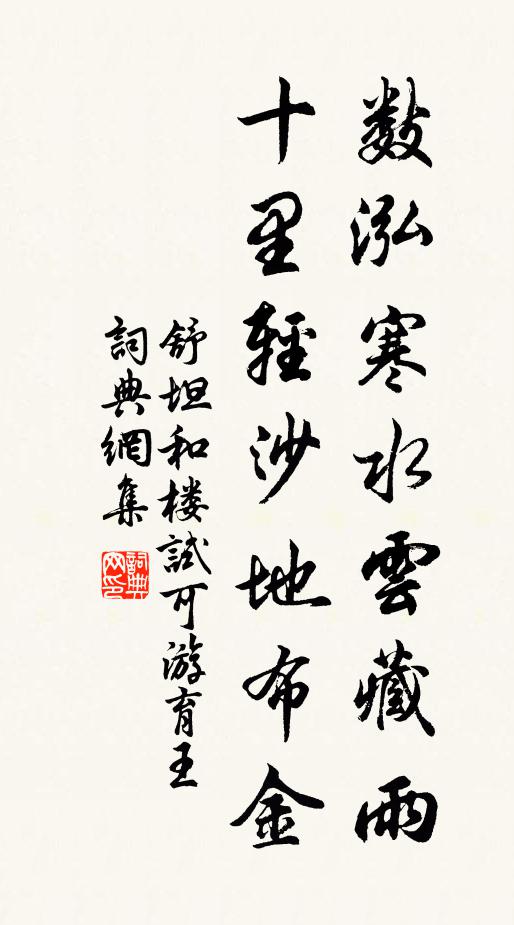 數泓寒水雲藏雨
十里輕沙地布金
舒坦和楼試可游育王
詞典網集
詞典網印